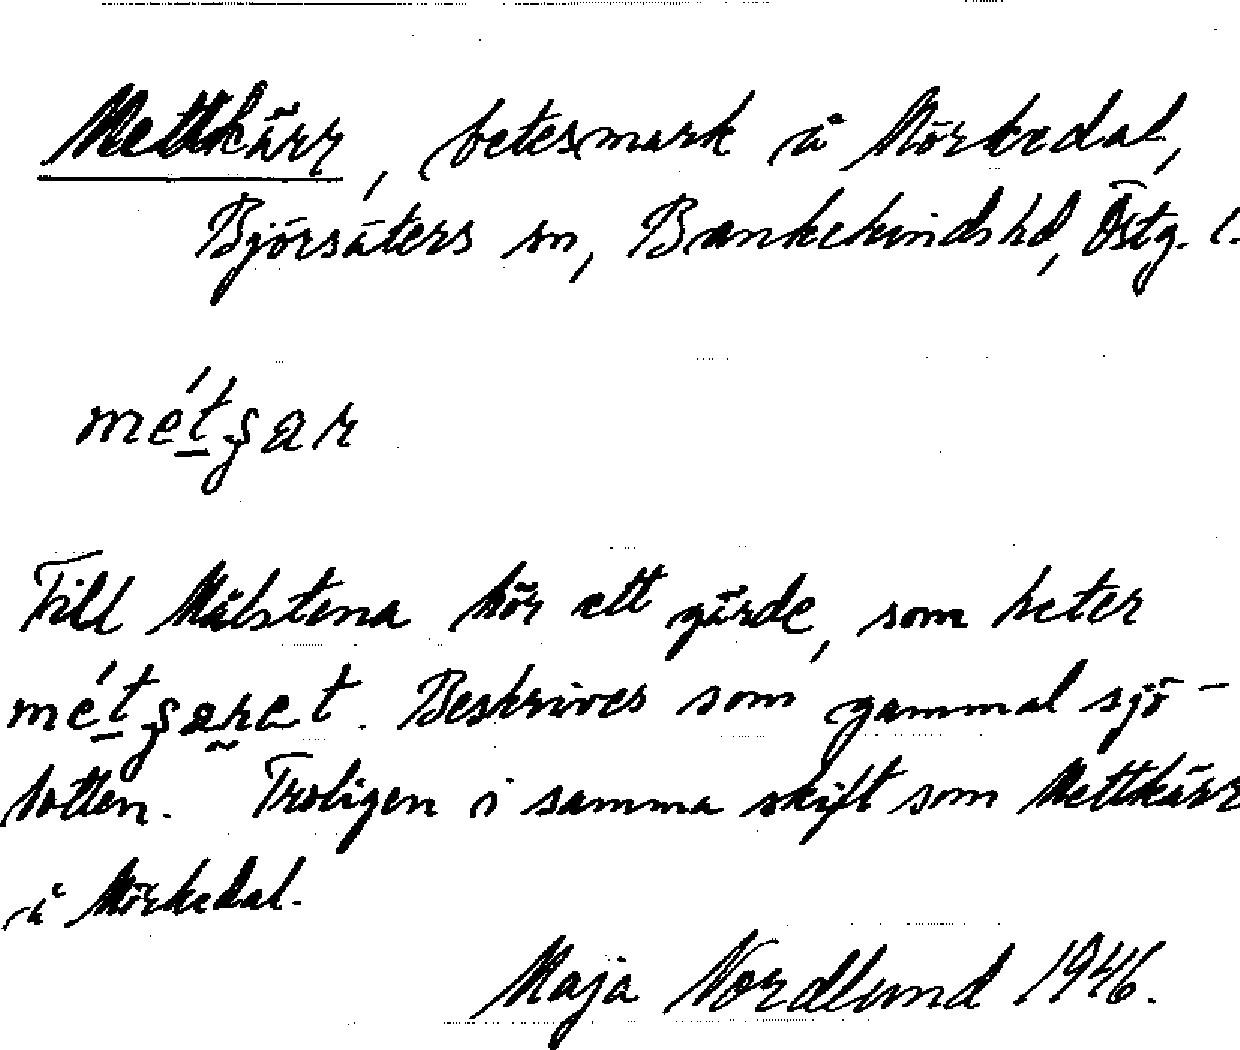 Mettkärr, betesmark å Mörkedal,
Björsäters sn, Bankekinds hd, Östg. l.
métʂar
Till Målstena hör ett gärde, som heter
métʂaret. Beskrives som gammal sjö-
botten. Troligen i samma skift som Mettkärr
å Mörkedal.
Maja Nordlund 1946.